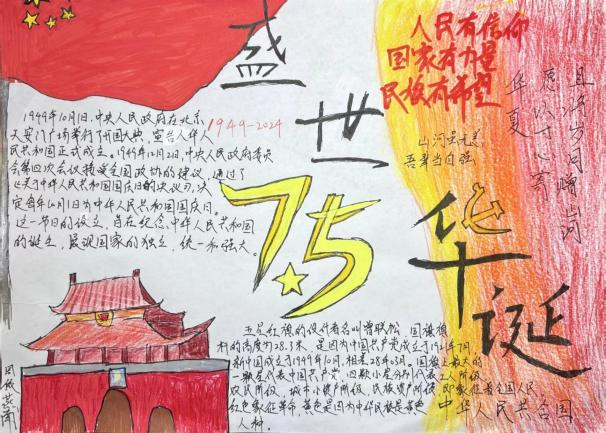 盛世华诞
75
1949-2024
人民有信仰
国家有力量
民族有希望
且将岁月赠山河
华夏
山河无恙
吾辈当自强
1949年10月1日，中央人民政府在北京
天安门广场举行了开国大典，宣告中华人
民共和国正式成立。1949年12月2日，中央人民政府委员
会第四次会议接受全国政协的建议，通过了
《关于中华人民共和国国庆日的决议》，决
定每年10月1日为中华人民共和国国庆日。
这一节日的设立，旨在纪念中华人民共和国
的诞生，展现国家的独立、统一和强大。
五星红旗的设计者名叫曾联松 国旗旗
杆的高度为28.3米，是因为中国共产党成立于1921年7月
新中国成立于1949年10月，相差28年03月，国旗上最大的
一颗星代表中国共产党，四颗小星分别代表工人阶级
农民阶级，城市小资产阶级，民族资产阶级
红色象征革命 黄色是因为中华民族是黄色
人种。
中华人民共和国